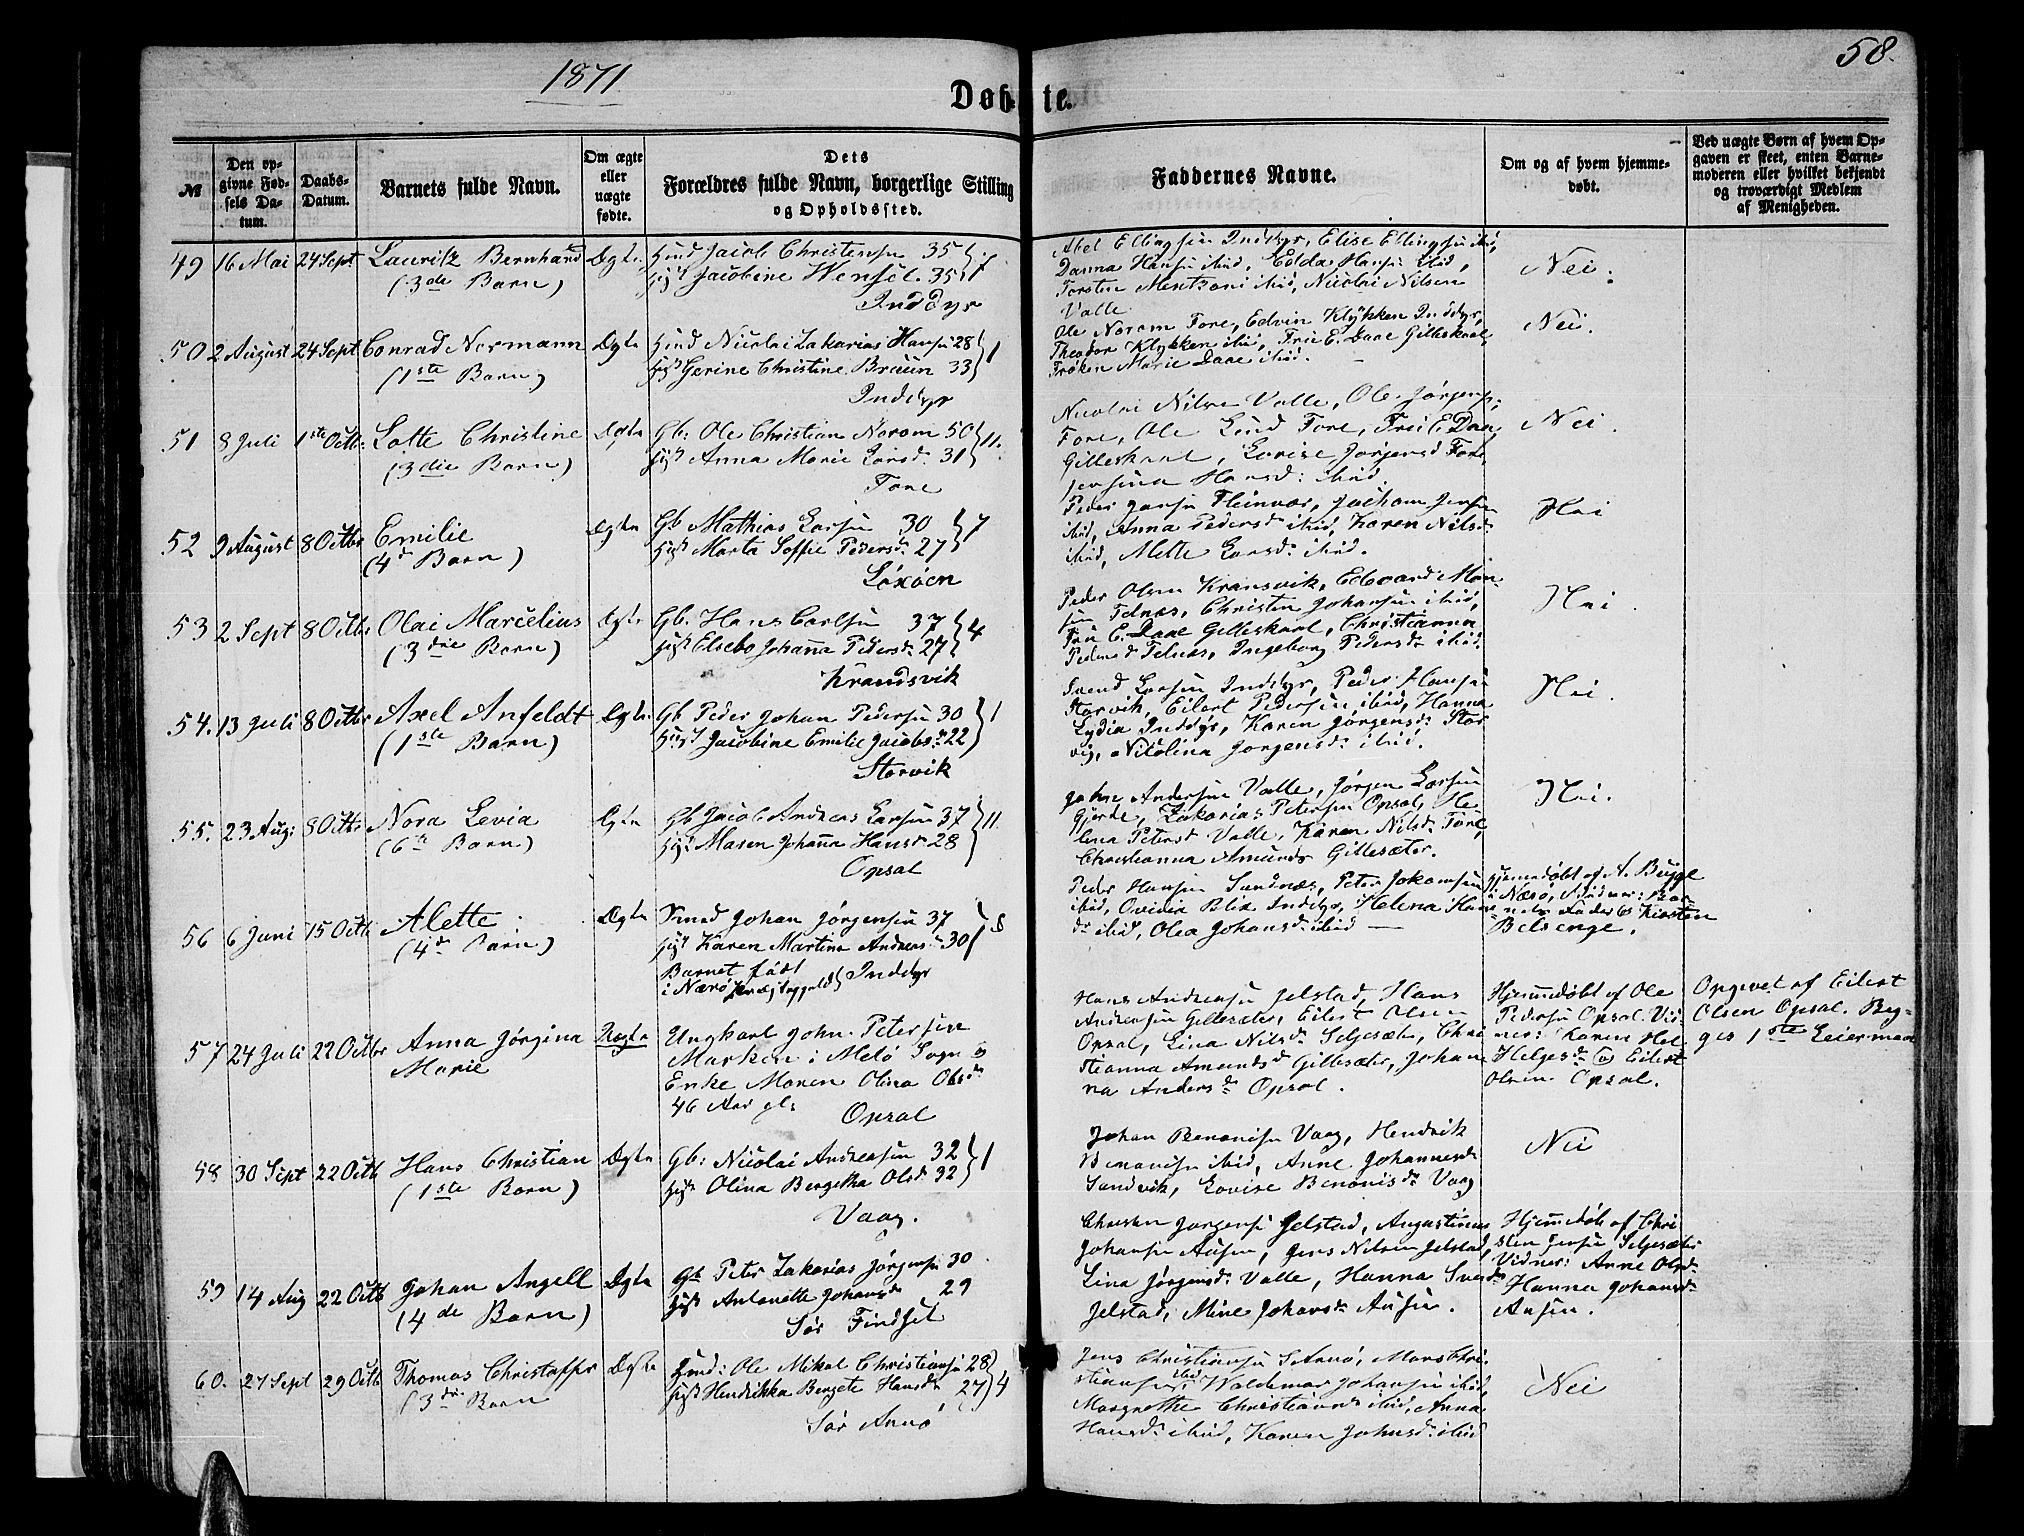 1871
58.
Døb-te.
№
Den op-
givne Fød-
sels Da-
tum.
Daabs-
Datum.
Barnets fulde Navn.
Om ægte
eller
uægte
fødte.
Dets
Forældres fulde Navn, borgerlige Stilling
og Opholdssted.
Faddernes Navne.
Om og af hvem hjemme-
døbt.
Ved uægte Børn af hvem Op-
gaven er skeet, enten Barne-
moderen eller hvilket bekjendt
og troværdigt Medlem
af Menigheden.
49 16 Mai 24 Sept Lauritz Bernhard Ægte
(3de Barn)
Hmd Jacob Christensen 35
Hust Jacobine Wensel. 35 } 7
Inddyr
Abel Ellingsen Inddyr, Elise Ellingsen ibid,
Danna Hansen ibid, Edda Hansen ibid,
Torsten Mentzoni ibid, Nicolai Nilsen
Valle.
Nei.
50 2 August 24 Sept Conrad Normann Ægte
(1ste Barn)
Hmd Nicolai Zakarias Hansen 28
Hust Gerine Christine Bruun 33 } 1
Inddyr
Ole Norum Fore, Edvin Klykken Inddyr,
Theodor Klykken ibid, Fru E. Daae Gilleskaal,
Frøken Marie Daae ibid.
Nei.
51 8 Juli 1ste Octb: Lotte Christine Ægte
(3die Barn)
Gb: Ole Christian Norom 50
Hust Anna Marie Larsd: 31 } 11.
Fore
Nicolai Nilsen Valle, Ole Jørgens,
Fore, Ole Lund Fore, Fru E Daae,
Gilleskaal, Lovise Jørgensd Fore,
Jensina Hansd: ibid.
Nei.
52 9 August 8 Octbr Emilie Ægte
(4d Barn)
Gb Mathias Larsen 30
Hust Marta Soffie Pedersd: 27 } 7
Løxøen
Peder Jansen Fleinvær, Jochom Jensen
ibid, Anna Pedersd: ibid, Karen Nilsd:
ibid, Mette Larsd: ibid.
Nei
53 2 Sept 8 Octbr Olai Marcelius Ægte
(3die Barn)
Gb. Hans Carlsen 37
Hust Elsebe Johanna Pedersd: 27 } 4
Krandsvik
Peder Olsen Kransvik, Edevard Mon
sen Telnæs, Christen Johansen ibid,
Fru E. Daae Gilleskaal, Christianna
Pedersd Telnæs, Ingeborg Pedersd: ibid.
Nei.
54. 13 Juli 8 Octbr Axel Anfeldt Ægte
(1ste Barn)
Gb Peder Johan Pedersen 30
Hust Jacobine Emilie Jacobsd: 22 } 1
Storvik
Svend Larsen Inddyr, Peder Hansen
Storvik, Eilert Pedersen ibid, Hanna
Lydia Inddyr, Karen Jørgensd: Stor
vig, Nicolina Jørgensd: ibid.
Nei.
55. 23 Aug: 8 Octbr Nora Levia Ægte
(6te Barn)
Gb Jacob Andreas Larsen 37
Hust Maren Johanna Hansd: 28 } 11.
Opsal
Johan Andersen Valle, Jørgen Larsen
Gjerde, Zakarias Petersen Opsal, He
lena Petersd: Valle, Karen Nilsd: Fore,
Christianna Amunds Gillesæter.
Nei.
56 6 Juni 15 Octb Alette Ægte
(4de Barn)
Smed Johan Jørgensen 37
Hust Karen Martina Andreas: 30 } 8
Barnet født
i Nærø Inddyr
Peder Hansen Sundnæs, Peter Johansen
ibid, Ovidia Blix Inddyr, Helena Hans
d: ibid, Olea Johansd: ibid
Hjemmedøbt af A. Bugge
i Nærø, Vidner: Bar
nets Fader & Kirsten
57 24 Juli 22 Octbr Anna Jørgina
Marie
Uægte
Ungkarl John Petersen
Marken i Melø Sogn &
Enke Maren Olina Olsd:
46 Aar gl: Opsal
Hans Andreasen Jelstad, Hans
Andreasen Gillesæter, Eilert Olsen
Opsal, Lina Nilsd: Seljesæter, Chri
stianna Amundsd Gillesæter, Johan
na Andersd: Opsal.
Hjemmedøbt af Ole
Pedersen Opsal. Vid-
ner: Karen Hel
gesd: & Eilert
Olsen Opsal.
Opgivet af Eilert
Olsen Opsal. Beg-
ges 1ste Leiermaal
58 30 Sept 22 Octb Hans Christian Ægte
(1ste Barn)
Gb: Nicolai Andreasen 32
Hust Olina Bergetha Olsd: 32 } 1
Vaag.
Johan Benonisen Vaag, Hendrik
Benonisen ibid, Anne Johannesd:
Sandvik, Lovise Benonisd: Vaag
Nei
59 14 Aug 22 Octb Johan Angell Ægte
(4de Barn)
Gb Peter Zakarias Jørgensen 30
Hust Antonette Johansd: 29
Sør Findset
Christen Jørgensen Jelstad, Augustinus
Johansen Ausen, Jens Nilsen Jelstad,
Lina Jørgensd: Valle, Hanna Svends
Jelstad, Mine Johansd: Ausen.
Hjemmedøb af Chri
sten Jensen Seljesæter
Vidner: Anne Olsd:
Hanna Johansd:
Ausen.
60. 27 Sept 29 Octb Thomas Christoffer Ægte
(3die Barn
Hmd: Ole Mikal Christiansen 28
Hust Hendrikka Bergete Hansd: 27 } 4
Sør Arnø
Jens Christiansen S. Arnø, Mons Chri-
stiansen ibid, Waldemar Johansen ibid,
Margrethe Christiansd: ibid, Anna
Hansd: ibid, Karen Johnsd: ibid
Nei